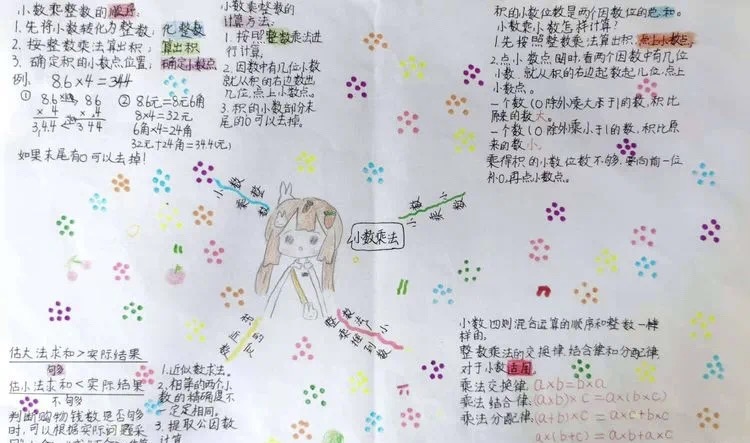 小数乘整数的顺序:
1. 先将小数转化为整数, 化整数
2. 按整数乘法算出积, 算出积
3. 确定积的小数点位置, 确定小数点
例. 8.6×4=344
① 8.6 ×10 86 ② 8.6元=8元6角
× 4 × 4 8×4=32元
3,4.4 344 6角×4=24角
32元+24角=34.4(元)
如果末尾有0可以去掉!
小数乘整数的
计算方法:
1. 按照整数乘法进
行计算,
2. 因数中有几位小数
就从积的右边数出
几位,点上小数点。
3. 积的小数部分末
尾的0可以去掉。
积的小数位数是两个因数位的总和。
小数乘小数怎样计算?
1. 先按照整数乘算出积,点上小数点,
2. 点小数点时,看两个因数中有几位
小数,就从积的右边起数起几位,点上
小数点。
一个数(0除外)乘大于1的数,积比
原来的数大。
一个数(0除外)乘小于1的数,积比原
来的数小。
乘得积的小数位数不够,要向前一位
补0,再点小数点。
小数乘整数
小数乘小数
小数乘法
整数乘法推到小数
估大法求和>实际结果
够
估小法求和<实际结果
不够
判断购物钱数是否够
时,可以根据实际问题采
1. 近似数求法。
2. 相等的两个小
数的精确度不
一定相同。
3. 提取公因数
计算
小数四则混合运算的顺序和整数一样
样的,
整数乘法的交换律,结合律和分配律,
对于小数适用,
乘法交换律, a×b=b×a
乘法结合律, (a×b)×c=a×(b×c)
乘法分配律, (a+b)×c=a×c+b×c
a×(b+c)=a×b+a×c